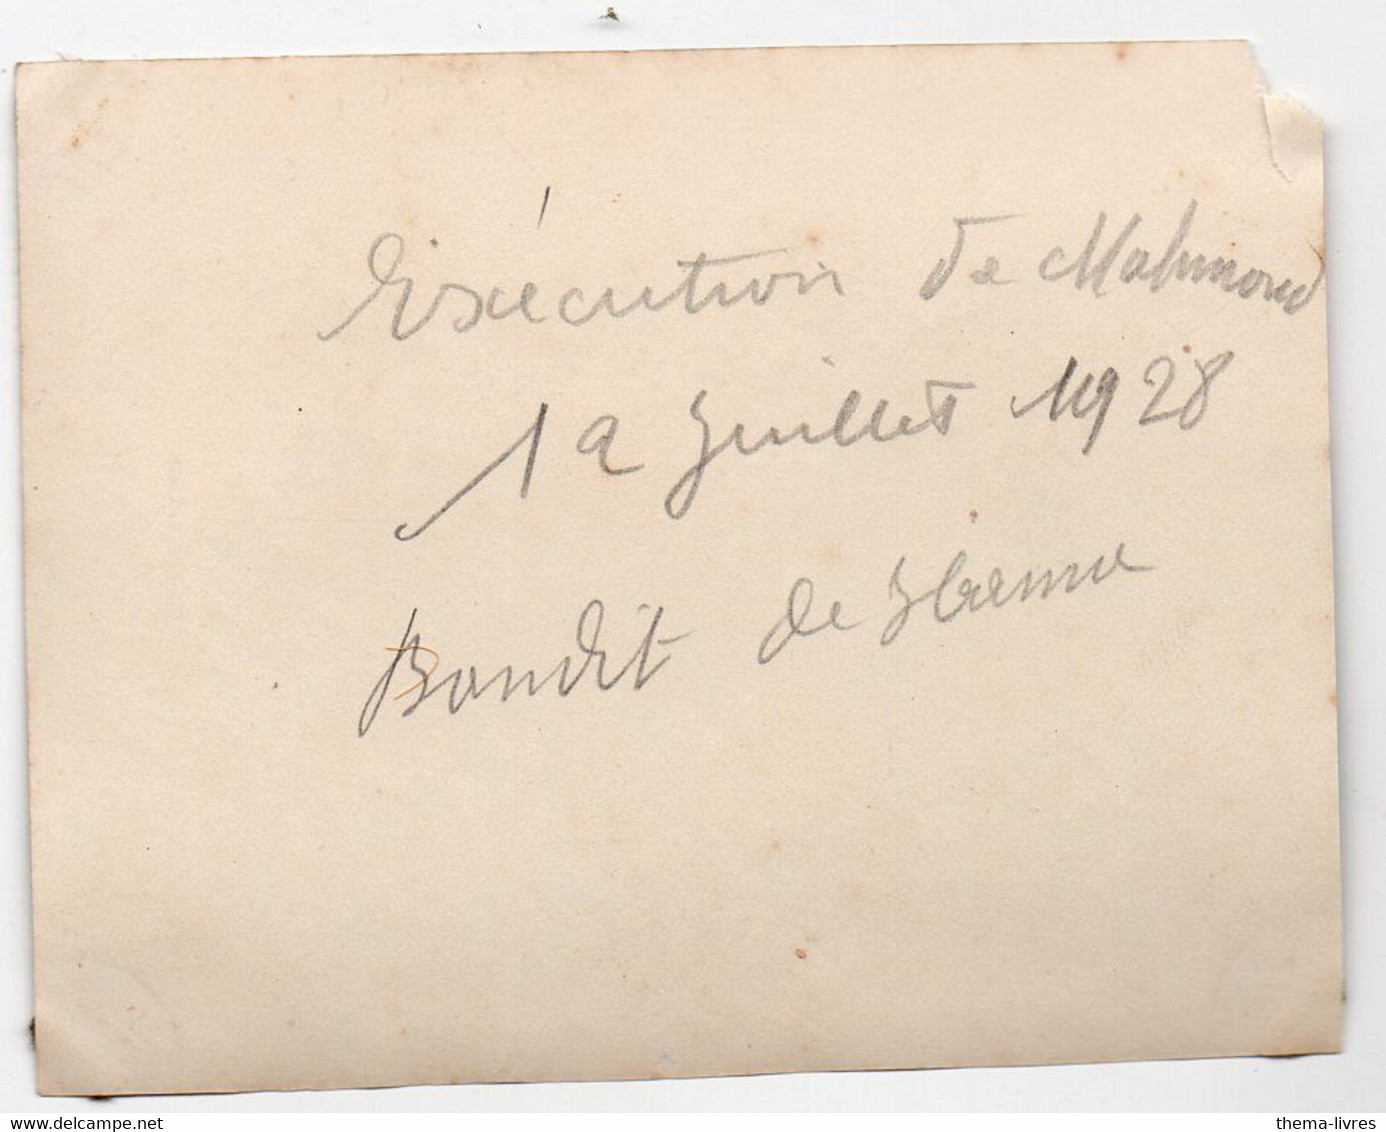 Exécution de Mahmoud
12 Juillet 1928
Bandit de
www.delcampe.net
thema-livres